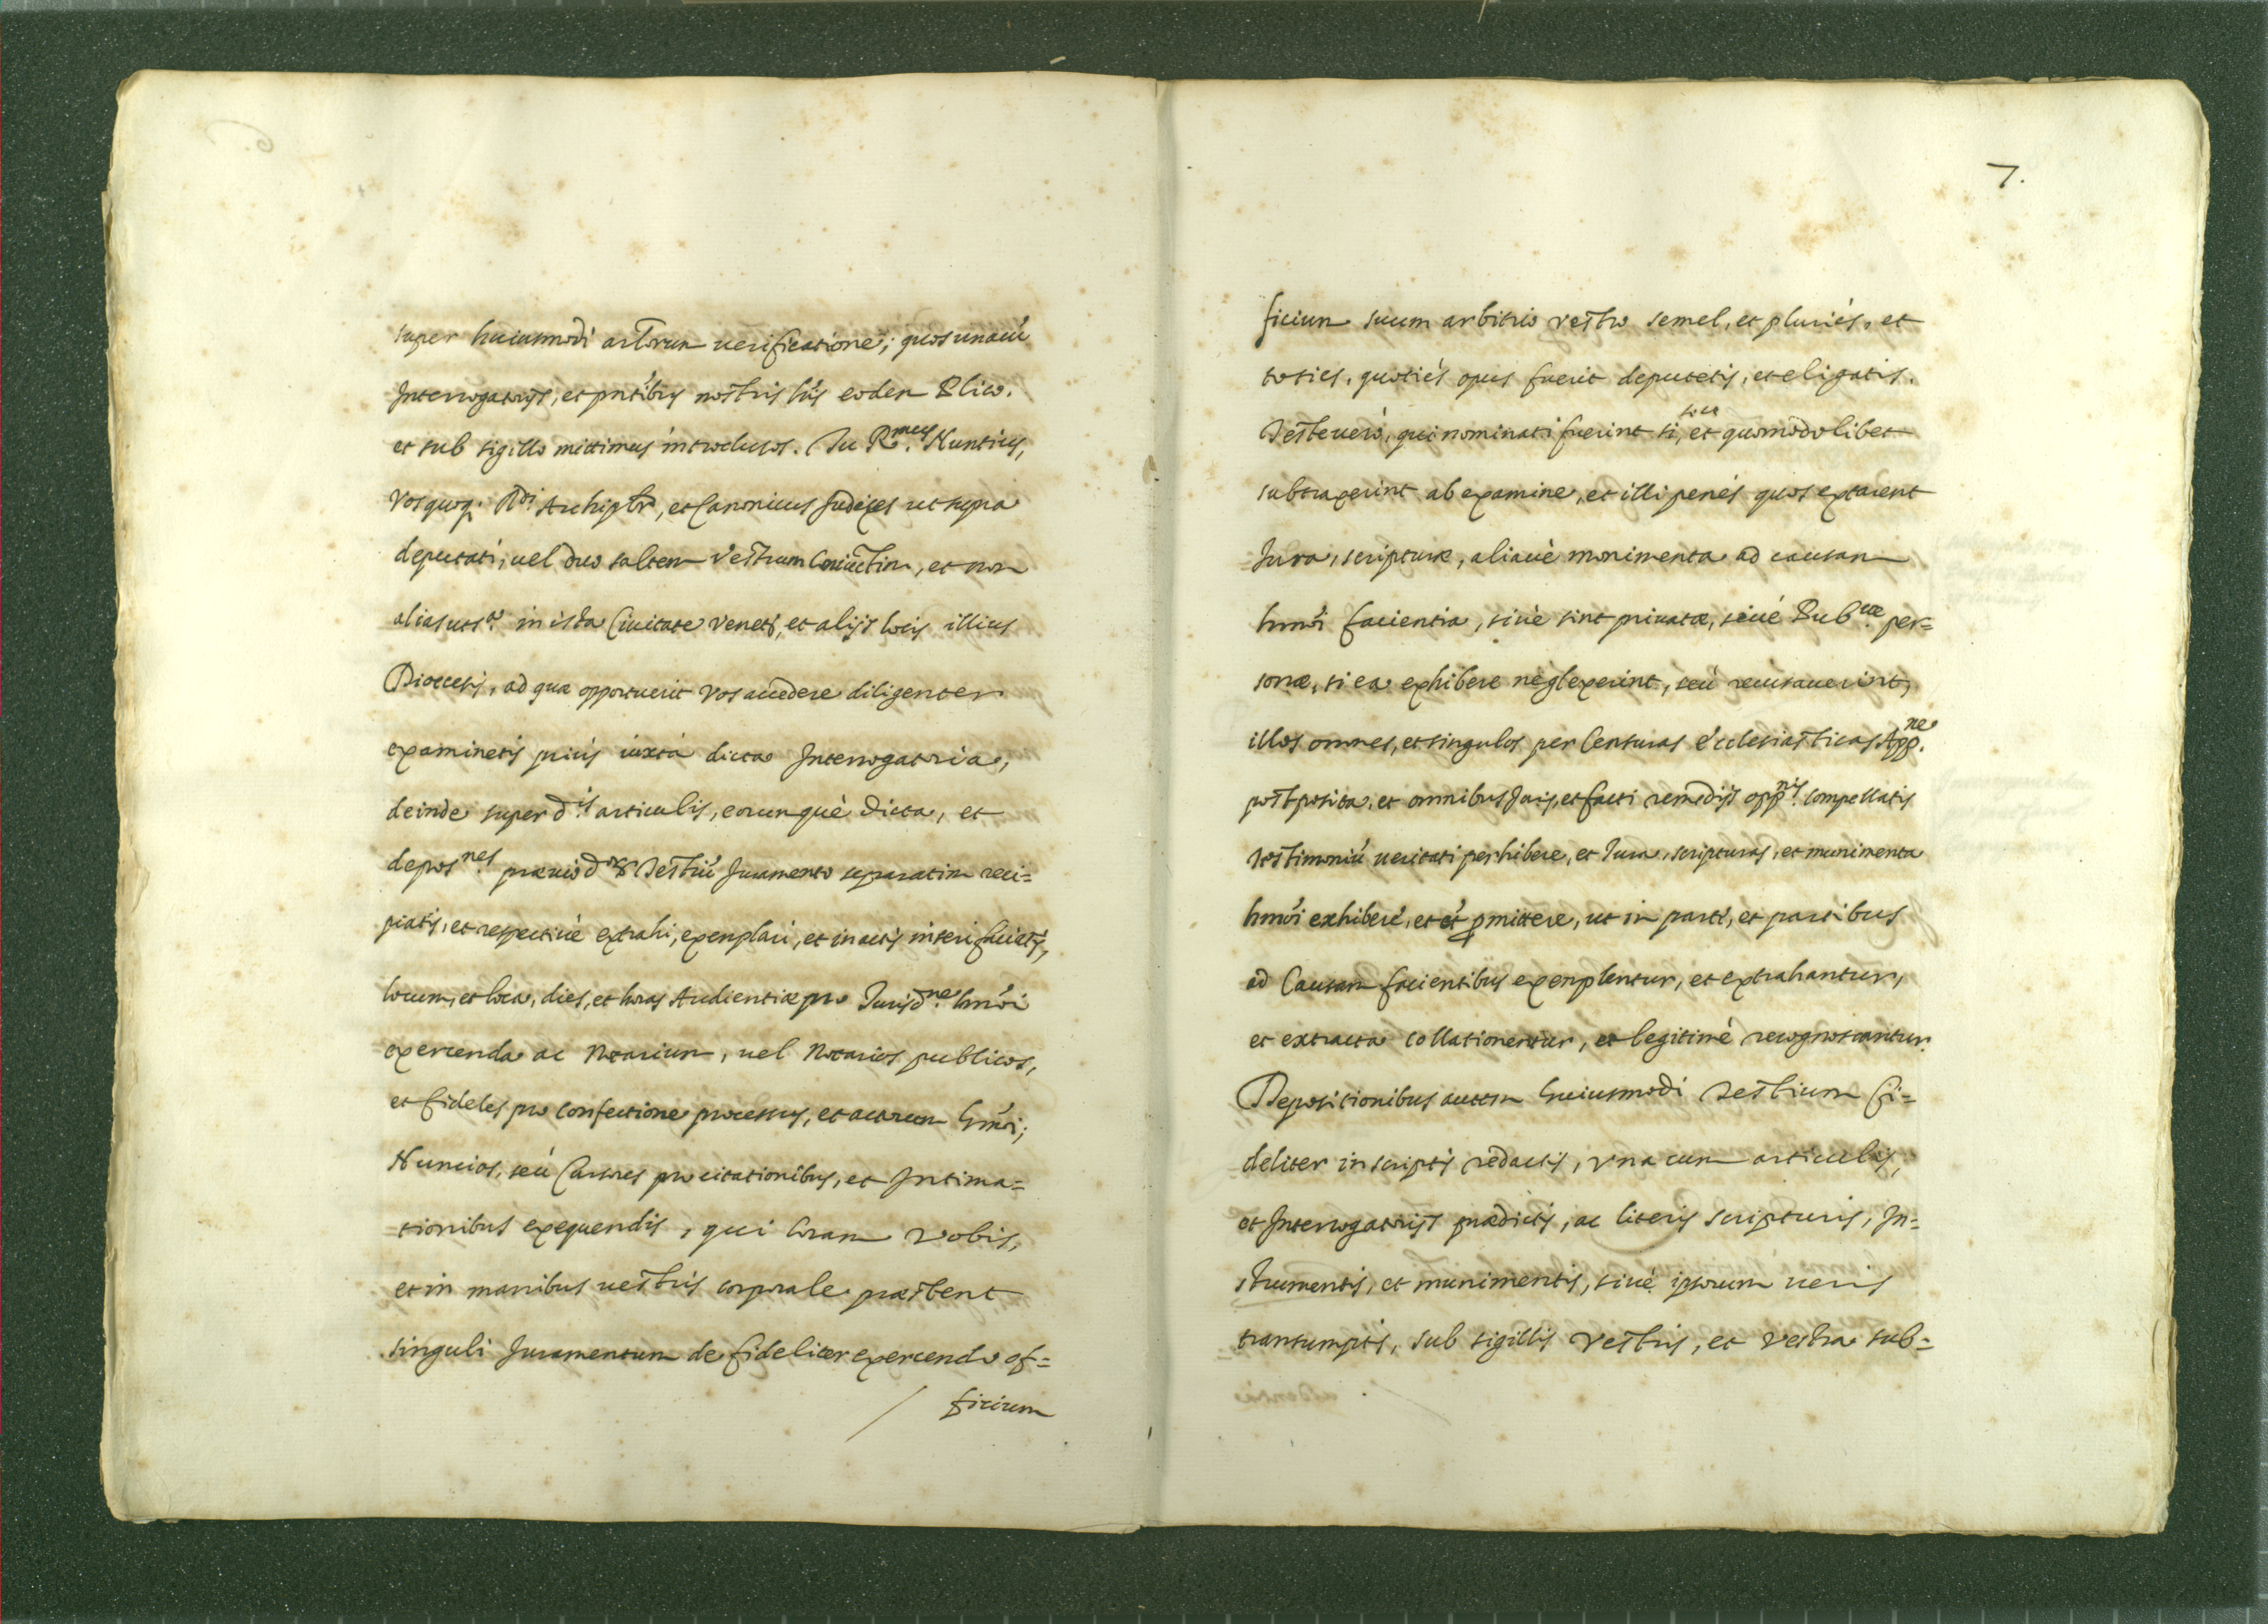 super huiusmodi artorum uerificatione; quos unacũ
Interrogatorijs, et pñtibus nostris lr̃is eodem Plico.
et sub sigillo mittimus introclusos. Tu R.mus Nuntius,
Vos quoq; Rdi Archipbr, et Canonicus Judices ut supra
deputati, uel duo saltem Vestrum Coniũctim, et non
alias uts.a in ista Ciuitate Venetĩ, et alijs locis illius
Dioecesis, ad quæ opportuerit vos accedere diligenter
examinetis priùs iuxtà dicta Interrogatoria,
deinde super d.is articulis, eorumquè dicta, et
depos.nes præuio d.or Testiũ Juramento separatim reci=
piatis, et respectiuè extrahi, exemplari, et in actis inseri faciatis,
locum, et loca, dies, et horas Audientiæ pro Jurisd.ne hmõi
exercenda ac Notarium, uel Notarios publicos,
et fideles pro confectione processus, et actorum hmõi;
Nuncios, seù Cursores pro citationibus, et Intima=
tionibus exequendis, qui coram vobis,
et in manibus uestris corporale præstent
singuli Juramentum de fideliter exercendo of=
ficium
7.
ficium suum arbitrio vestro semel, et pluriés, et
toties, quotiés opus fuerit deputetis, et eligatis.
Testes uerò, qui nominati fuerint si, et quomodolibet
subtraxerint ab examine, et illi penés quos extarent
Jura, scripturæ, aliauè monimenta ad causam
hmõi facientia, siuè sint priuatæ, siué Pub.cæ per=
sonæ, si ea exhibere neglexerint, seù recusauerint,
illos omnes, et singulos per Censuras ecclesiasticas App.ne
postposita, et omnibus Juris, et facti remedijs opp.nis compellatis
testimoniũ ueritati perhibere, et Jura, scripturas, et munimenta
hmõi exhibere, et et̃ pmittere, ut in parte, et partibus
ad Causam facientibus exemplentur, et extrahantur,
et extracta collationentur, et legitimè recognoscantur.
Depositionibus autem huiusmodi Testium fi=
deliter in scriptis redactis, vna cum articulis,
et Interrogatorijs prædictis, ac literis scripturis, In=
strumentis, et munimentis, siuè ipsorum ueris
transumptis, sub sigillis vestris, et vestra sub=